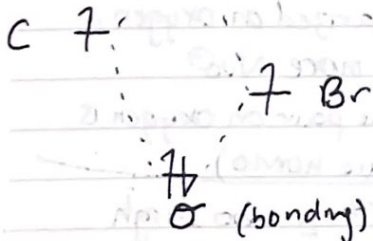 C
Br
σ (bonding)